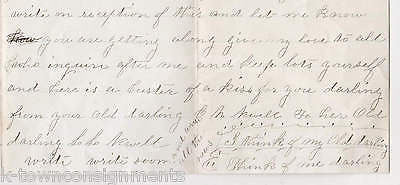 write on reception of this and let me know
How you are getting along giving my love to all
who inquire after me and keep lots yourself
and here is a Buster of a kiss for you darling
from your old darling E M Newell to her Old
darling Lo Lo Newell
write write soon
and write
all the
news
I think of my Old darling
Think of me darling
© k-townconsignments